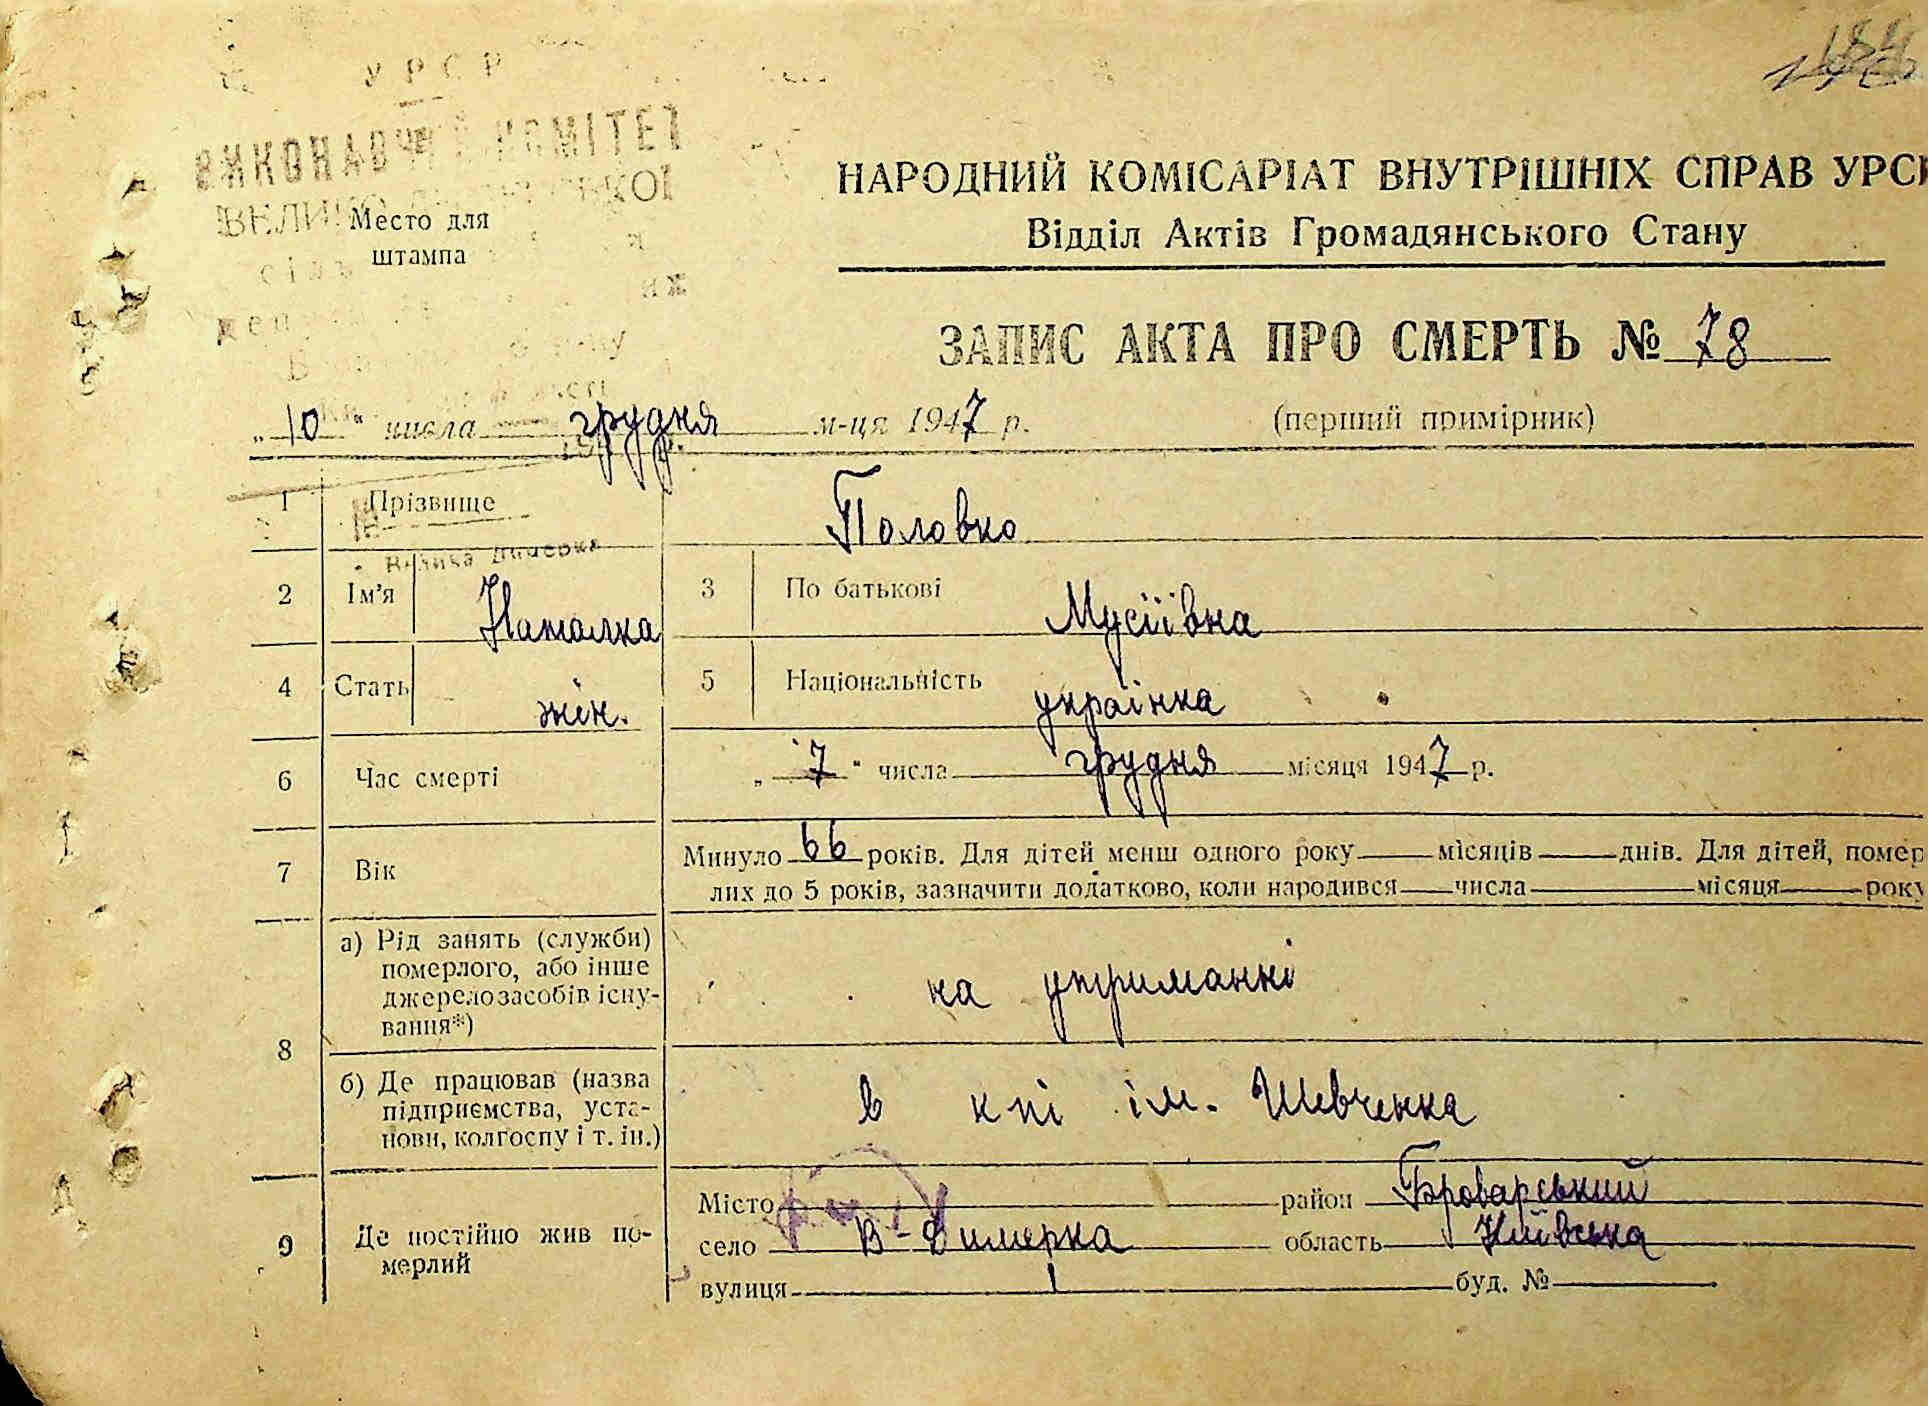 УРСР
ВИКОНАВЧИЙ КОМІТЕТ
Место для
штампа
НАРОДНИЙ КОМІСАРІАТ ВНУТРІШНІХ СПРАВ УРСР
Відділ Актів Громадянського Стану
ЗАПИС АКТА ПРО СМЕРТЬ № 78
„10“ числа грудня м-ця 1947 р. (перший примірник)
1 Прізвище Половко
Велика Димерка
2 Ім'я Наталка 3 По батькові Мусіївна
4 Стать жін. 5 Національність українка
6 Час смерті „7“ числа грудня місяця 1947 р.
7 Вік Минуло 66 років. Для дітей менш одного року — місяців — днів. Для дітей, помер
лих до 5 років, зазначити додатково, коли народився — числа — місяця — року
8 а) Рід занять (служби)
померлого, або інше
джерело засобів існу-
вання*)
на утриманні
б) Де працював (назва
підприємства, уста-
нови, колгоспу і т. ін.)
в кпі ім. Шевченка
9 Де постійно жив по-
мерлий
Місто район Броварський
село В-Димерка область Київська
вулиця буд. №